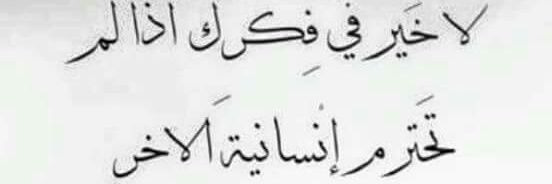 لا خَير في فِكرك اذا لم
تَحترم إنسانية الاخر